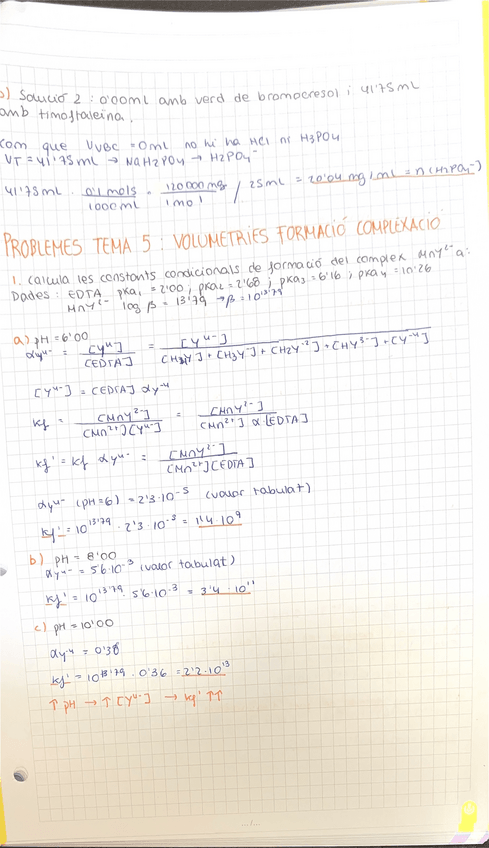 b) Solució 2 : 0'00ml amb verd de bromocresol i 41'75ml
amb timolftaleina.
com que VVBC = 0ml no hi ha HCl ni H3PO4
VT = 41'75ml → NaH2PO4 → H2PO4-
41'75ml · 0'1 mols / 1000ml · 120000mg / 1mol / 25ml = 20'04 mg/ml = n (H2PO4-)
PROBLEMES TEMA 5 : VOLUMETRIES FORMACIÓ COMPLEXACIÓ
1. Calcula les constants condicionals de formació del complex MnY2- a:
Dades : EDTA pka1 = 2'00 ; pka2 = 2'68 ; pka3 = 6'16 ; pka4 = 10'26
MnY2- log β = 13'79 → β = 10^13'79
a) pH = 6'00
αY4- = [Y4-] / [EDTA] = [Y4-] / [H4Y] + [H3Y-] + [H2Y-2] + [HY3-] + [Y-4]
[Y4-] = [EDTA] αY-4
Kf = [MnY2-] / [Mn2+][Y4-] = [MnY2-] / [Mn2+] α [EDTA]
Kf' = Kf αY4- = [MnY2-] / [Mn2+][EDTA]
αY4- (pH=6) = 2'3·10-5 (valor tabulat)
Kf' = 10^13'79 · 2'3·10-5 = 1'4·10^9
b) pH = 8'00
αY4- = 5'6·10-3 (valor tabulat)
Kf' = 10^13'79 · 5'6·10-3 = 3'4·10^11
c) pH = 10'00
αY-4 = 0'36
Kf' = 10^13'79 · 0'36 = 2'2·10^13
↑ pH → ↑ [Y4-] → Kf' ↑↑